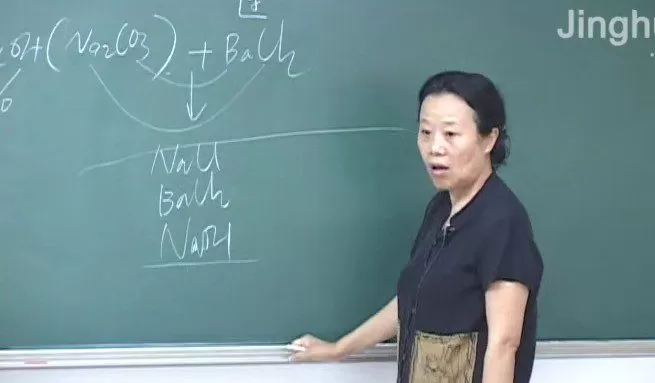 Jinghu
OH+(Na2CO3)+BaCl2
↓
NaCl
BaCl2
NaOH